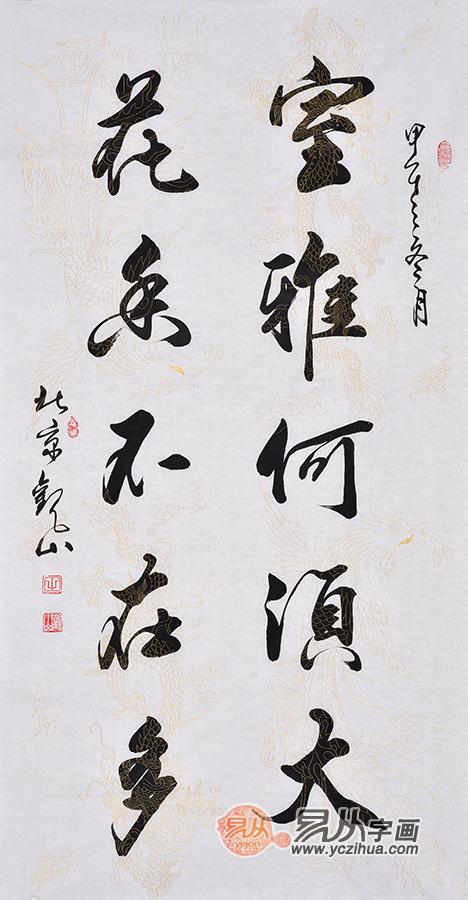 甲午冬月
室雅何须大
花香不在多
北京观山
易从字画
www.yczihua.com
易从